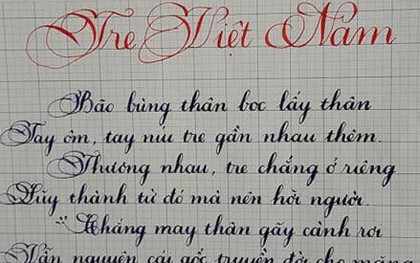 Tre Việt Nam
Bão bùng thân bọc lấy thân
Tay ôm, tay níu tre gần nhau thêm.
Thương nhau, tre chẳng ở riêng
Lũy thành từ đó mà nên hỡi người.
Chẳng may thân gãy cành rơi
Vẫn nguyên cái gốc truyền đời cho măng